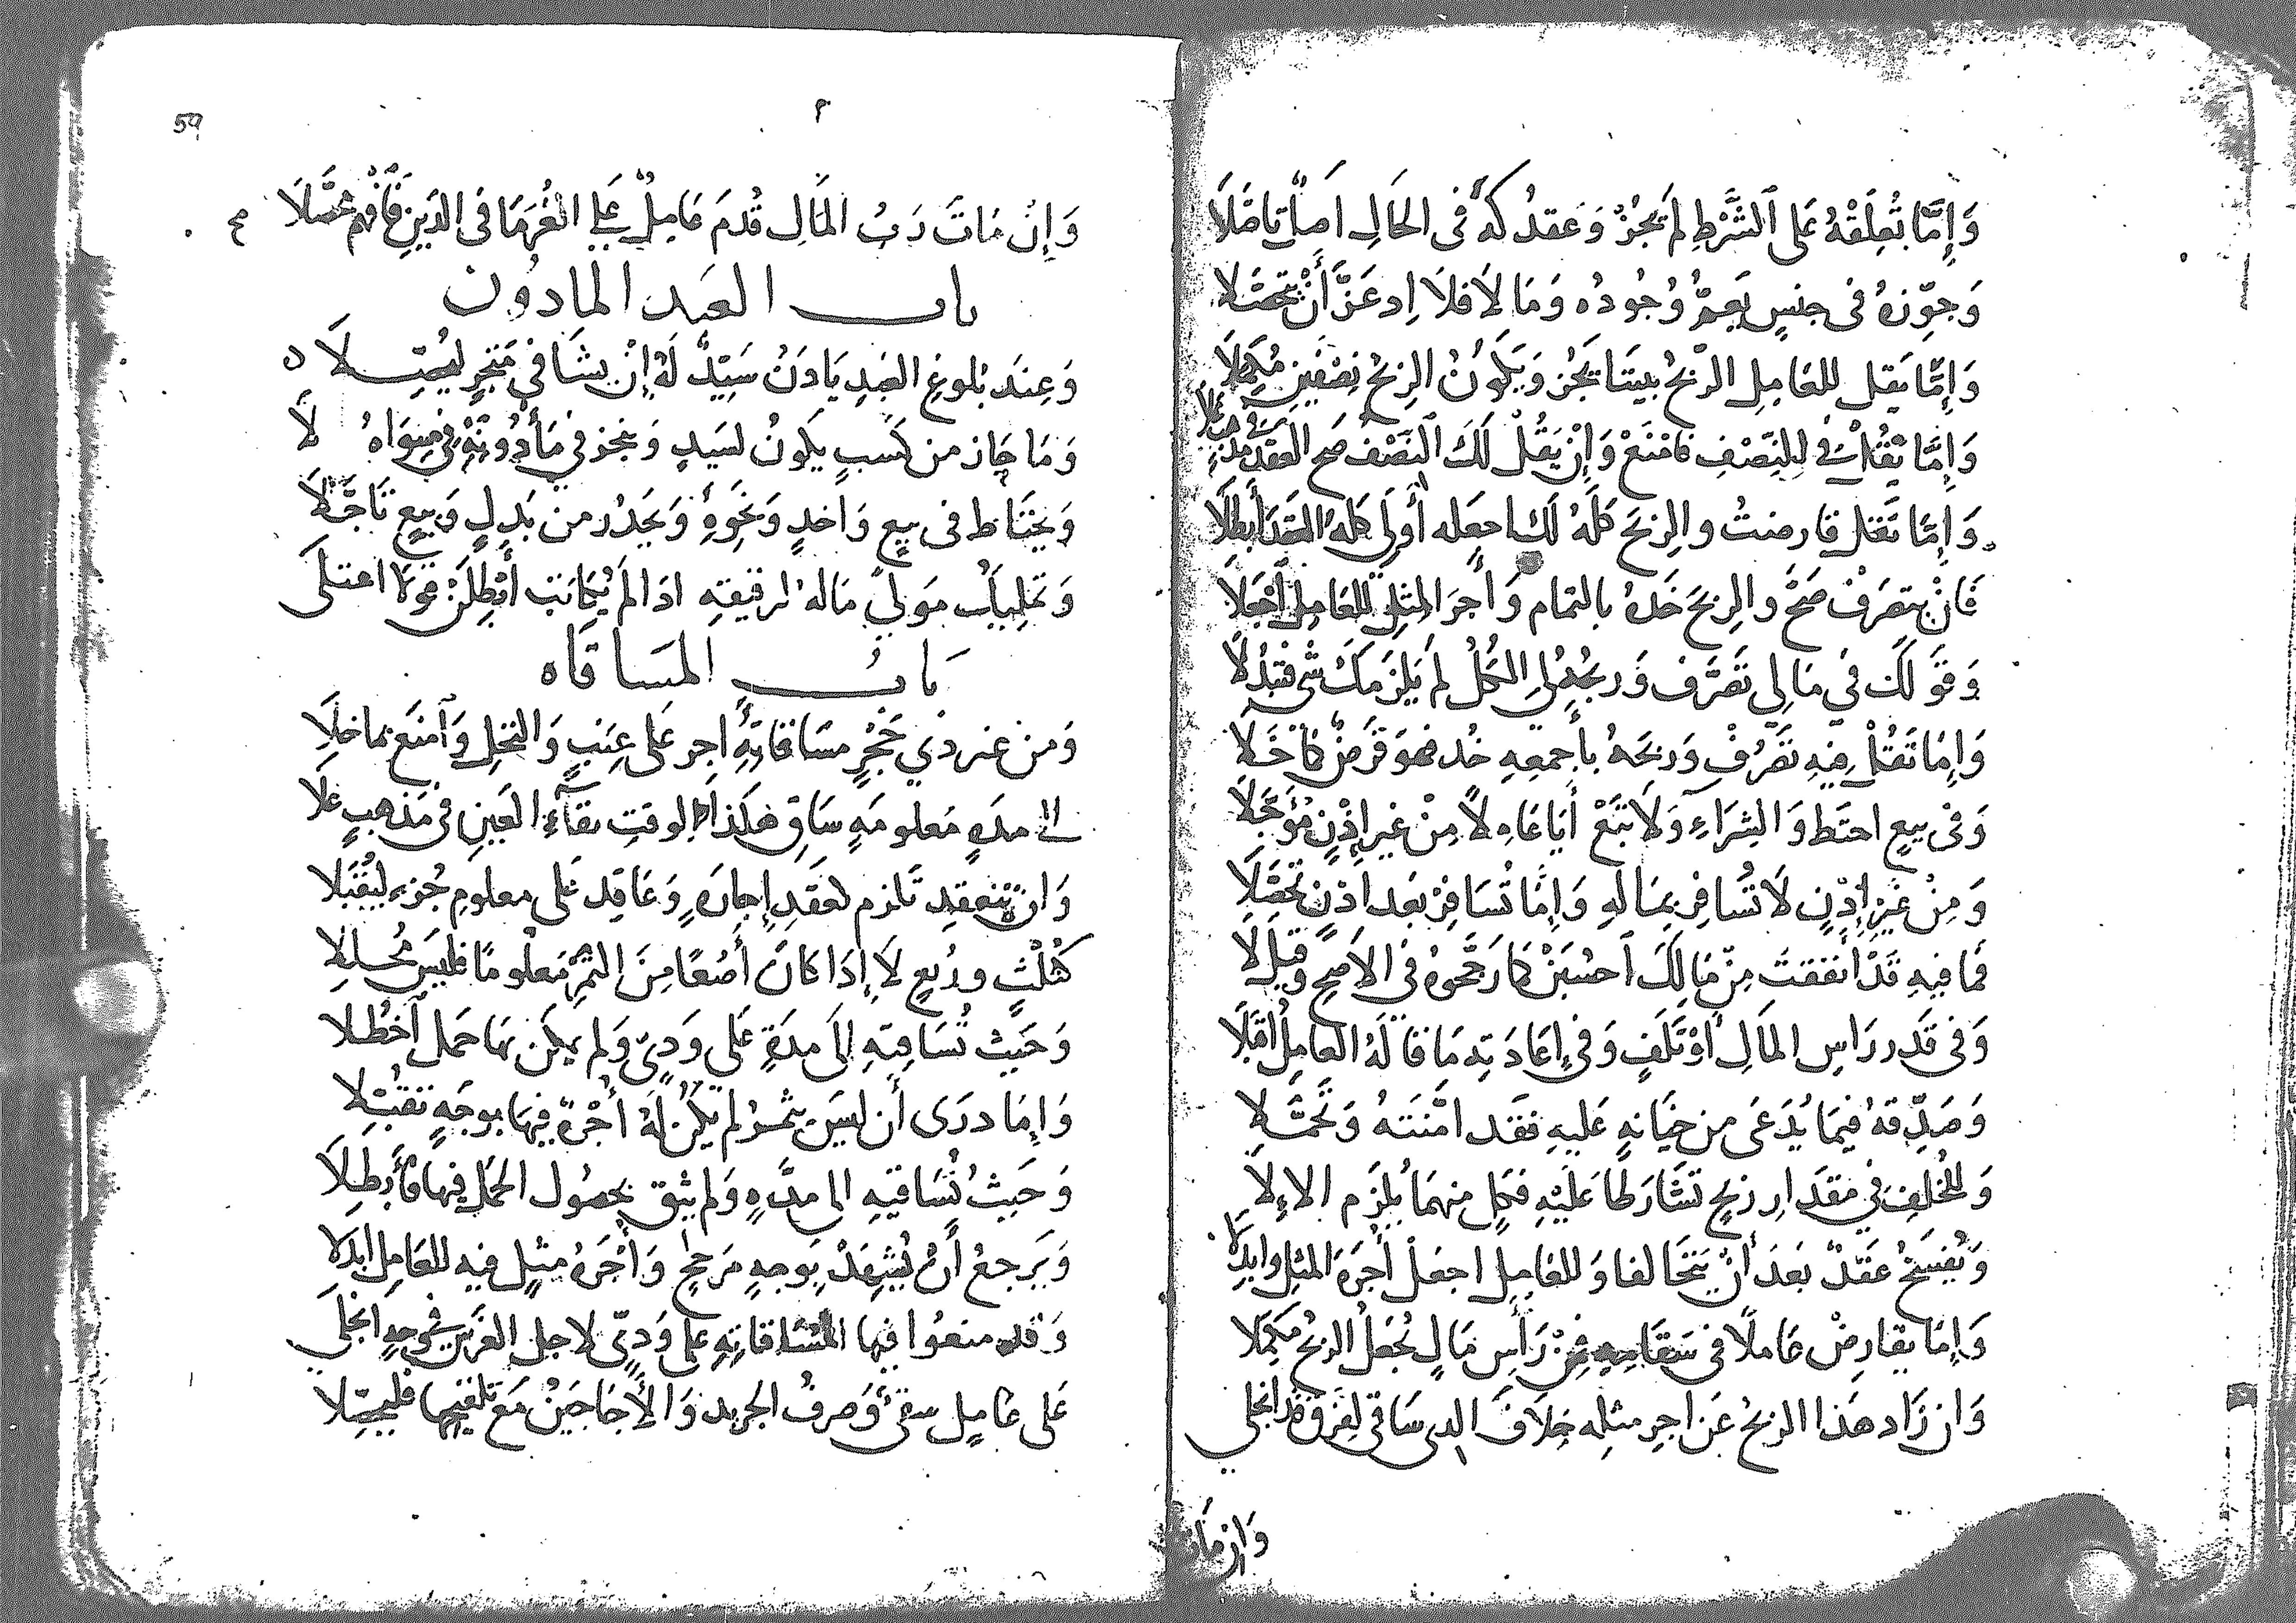 وَإِمَّا تُعَلِّقْهُ عَلَى الشَّرْطِ لَمْ يَجُزْ وَعَقْدُكَهُ فِي الحَالِ أَصْلٌ تَأَصَّلَا
وَجَوِّزْهُ فِي جِنْسٍ يَعُمُّ وُجُودُه وَمَا لَا فَلَا إِذ عَزَّ أَنْ يَتَحَصَّلَا
وَإِمَّا يَقُل للعَامِلِ الرِّبْحُ بَيْنَنَا يَجُز وَيَكُونُ الرِّبْحُ نِصْفَيْنِ مُكَمَّلَا
وَإِمَّا تَقُلْ لِي النِّصْفُ فَامْنَعْ وَإِنْ يَقُلْ لَكَ النِّصْفُ صَحَّ العَقْدُ
وَإِمَّا تَقُل قارضتُ والرِبحَ كُلَّهُ لَكَ اجعَله أَولِي كله العَقْدَ أَبْطِلَا
فَإِنْ يتصَرَفْ صَحَّ والرِبحَ خُذهُ بالتمام وَأَجرَ المِثلِ للعَامِلِ اجْعَلَا
وَقَولكَ فِي مَالِي تَصَرَّف وَربحُهُ لِي الكُلُّ لَمْ يَلزَمكَ شَيْ فَتَبْذُلَا
وَإِمَّا تَقُلْ فِيهِ تَصَرَّفْ وَرِبحَهُ بأَجمعِهِ خُذ فهوَ قَرضٌ
وَفِي بيعٍ احتَط وَالشِرَاءِ وَلَا تَبِعْ أَيَا عَامِلًا مِنْ غَيرِ إِذْنٍ مُؤَجَّلَا
وَمِنْ غَيرِ إِذْنٍ لَا تُسَافِرْ بِمَالِهِ وَإِمَّا تُسَافِرْ بَعدَ إِذْنٍ تَحَصَّلَا
فمَا فِيهِ قَدْ أَنفقتَ مِنْ مَالِكَ احْسُبَنْ كمَا رَجَّحُوهُ فِي الأَصَحِّ وَقِيلَ لَا
وَفِي قَدرِ رَاسِ المَالِ أَوْ تَلَفٍ وَفِي إِعَادَتِه مَا قَالَهُ العَامِلُ اقْبَلَا
وَصَدِّقهُ فِيمَا يُدَّعَى مِن خِيَانةٍ عَلَيهِ فَقَد امَّنتَهُ وَتَحَمَّلَا
وَللخُلفِ فِي مِقدَارِ رِبحٍ تَشَارَطَا عَلَيْهِ فَكلٌّ مِنهُمَا يُلزَم الإلَا
وَيُفسَخُ عَقدٌ بَعدَ أَنْ يَتَحَالفَا وَللعَامِلِ اجعَلْ أُجْرَةَ المثلِ
وَإِمَّا يقارِضْ عَاملًا فِي سقَامِهِ فمِنْ رَأسِ مَالٍ يُجعَلُ الرِبحُ مكمَّلَا
وَان زَادَ هَذَا الرِبحُ عَن اجرِ مثلِه خِلَافَ الذِي سَاقَى لِفَرقٍ قَد انجَلى
وَإن مَاتَ
59
وَإِنْ مَاتَ رَبُّ المَالِ قُدمَ عَامِلٌ عَلى الغُرَمَا فِي الدَينِ فَافْهَمْ مُحَصِّلَا صح
باب العبد المادون
وَعِندَ بُلوغِ العَبدِ يَاذَنُ سَيِّدٌ لَهُ إِنْ يشَا فِي مَتجَرٍ
وَمَا حَاز من كَسبٍ يَكونُ لسَيدٍ وَيتجر فِي مَأْذُونِهِ فِي سِوَاهُ لَا
وَيحتَاط فى بيعٍ وَاخذٍ وَنَحوِهِ وَيحذر من بَذلٍ وَبيعٍ تَأَجَّلَا
وَتمليك مَولىً مَالهُ لرقيقِهِ اذا لم يُكَاتب أَبْطِلَنْ قَولًا اعتلَى
بَابُ المسَاقَاه
وَمن غير ذي حَجْرٍ مسَاقَاتِهِ أَجِز على عِنَبٍ وَالنخلِ وَامنَع بما خَلَا
إلى مدهٍ مَعلومَهٍ سَاقِ هكَذا لِوقتِ بقَآءِ العَينِ فِي مَذهبٍ عَلَا
وَان تنعقِد تَلزم كعَقدِ إِجَارَةٍ وَعَاقِد عَلى معلومِ جُزءٍ لِيُقْبَلَا
كثُلْثٍ وربُعٍ لَا إِذَا كَانَ أَصُعًا مِنَ الثَّمَرِ مَعلُومًا فليسَ مُحَللَا
وَحَيث تُسَاقِيه إِلَى مدَةٍ عَلَى وَدِيٍّ وَلم يكن بهَا حَمل
وَإِمَّا درَى أَن لَيسَ يثمرُ لم يَكُنْ لهُ أُجْرَةٌ فِيهَا بوجَهٍ تقبَّلَا
وَحَيثُ تُسَاقيهِ إلى مدَّهٍ وَلم يثق بحصُولِ الحَمْلِ فِيهَا فَأَبطِلَا
وَيَرجعُ أَنْ يُشهِدْ بِوَجهٍ مرَجحٍ وَأُجْرَهُ مثلٍ فِيه للعَامِلِ ابذلَا
وَقَد منعُوا فِيهَا المسَاقاته عَلى وَدِيٍّ لاجلِ الغَرسِ فِي وجهٍ انجَلَى
عَلى عَامِلٍ سقىٌ وَصرفُ الجريد وَالأَجَاجِينُ مَعَ تَلقيحِهَا